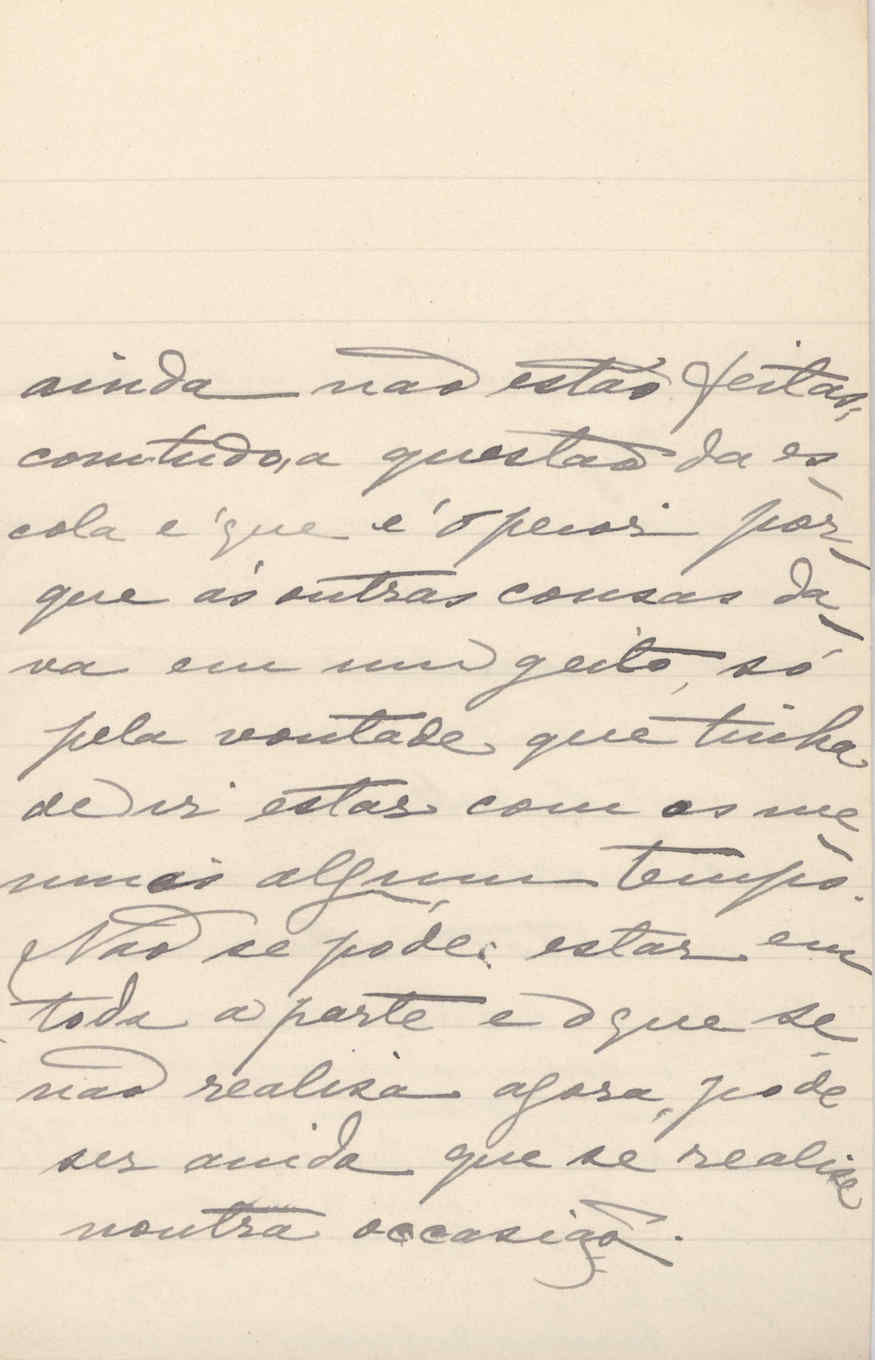 ainda não estão feitas,
comtudo, a questão da es-
cola é que é o peior por-
que ás outras cousas da-
va eu um geito, só
pela vontade que tinha
de ir estar com os me-
ninos algum tempo.
Não se póde estar em
toda a parte e o que se
não realisa agora, póde
ser ainda que se realise
noutra occasião.